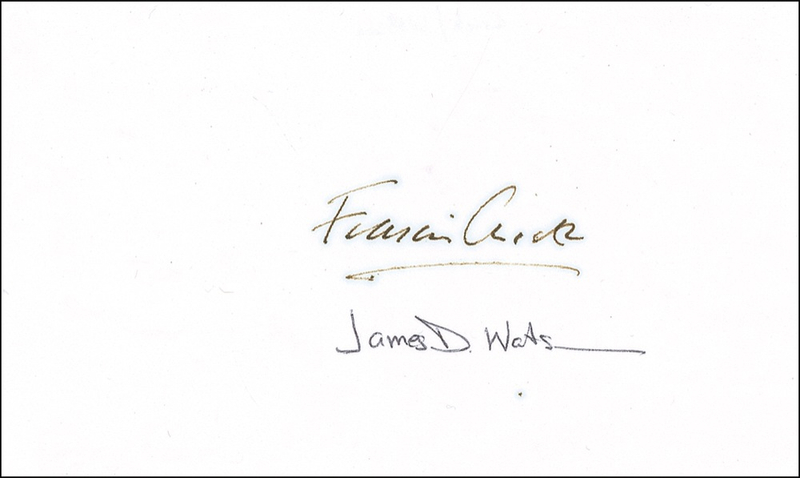 Francis Crick
James D. Watson